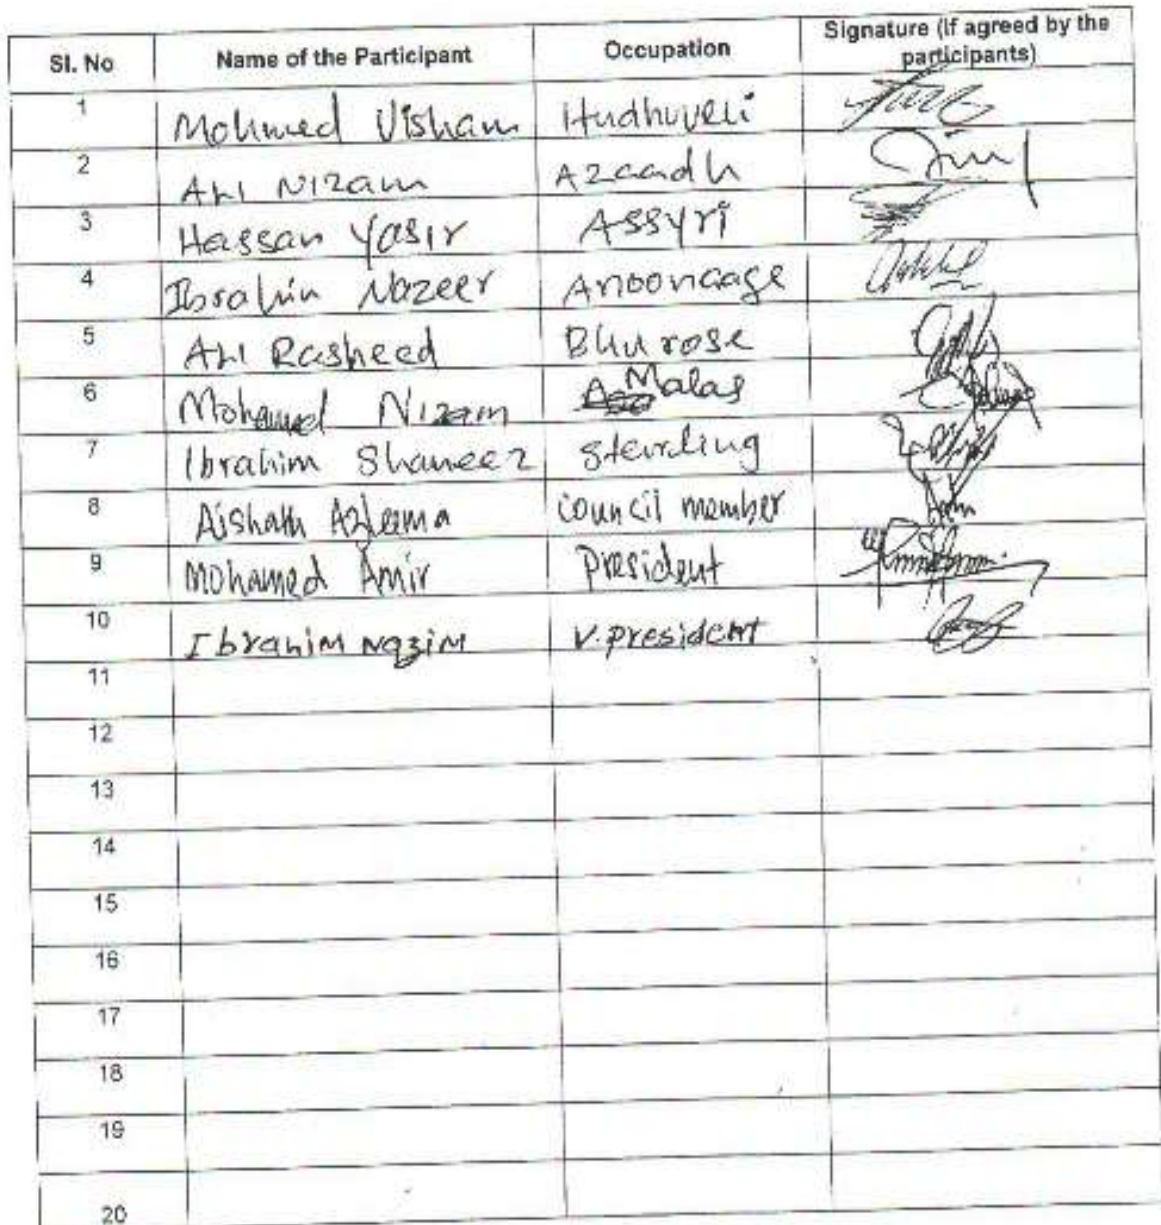 Sl. No Name of the Participant Occupation Signature (if agreed by the participants)
1 Mohmed Visham Hudhuveli
2 Ali Nizam Azaadh
3 Hassan Yasir Assyri
4 Ibrahim Nazeer Anoonaage
5 Ali Rasheed Blurose
6 Mohamed Nizam Malas
7 Ibrahim Shaneez Sterling
8 Aishath Azleema council member
9 Mohamed Amir President
10 Ibrahim Nazim V. president
11
12
13
14
15
16
17
18
19
20